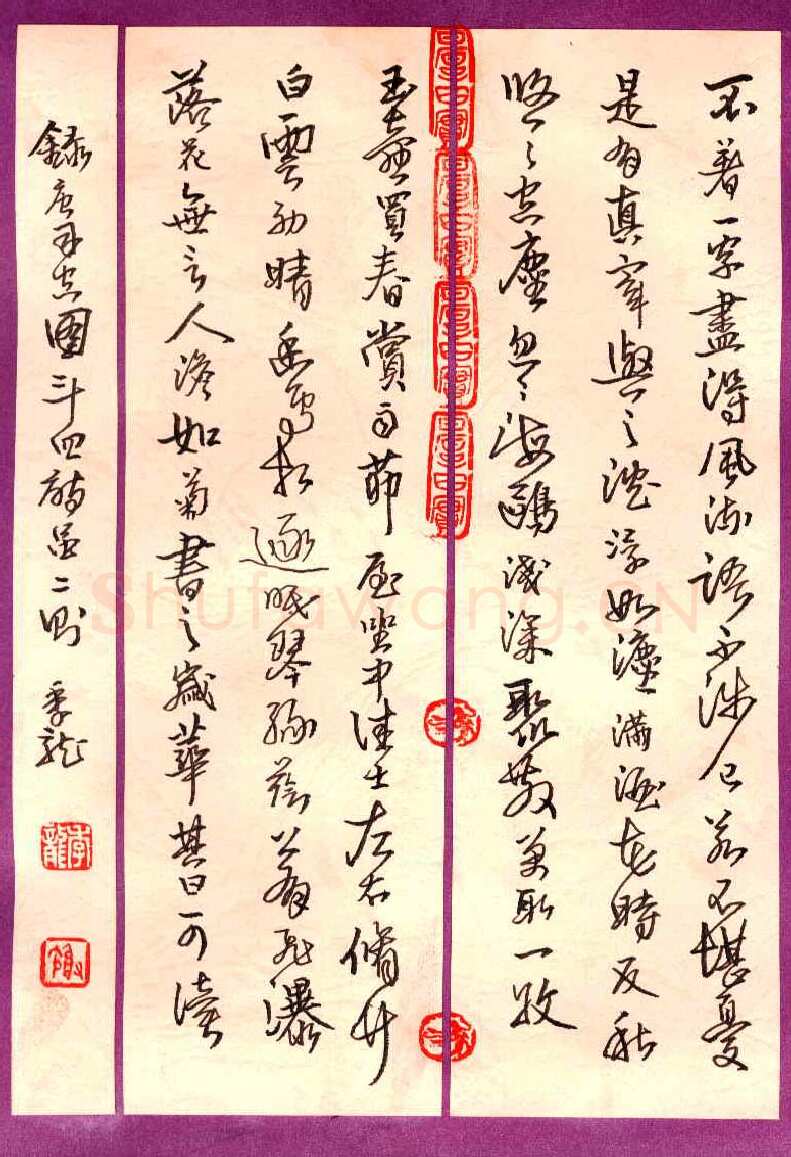 不著一字盡得風流語不涉己若不堪憂
是有真宰與之沈浮如漉滿酒花時反秋
悠〻空塵忽〻海鷗淺深聚散萬取一收
玉壺買春賞雨茆屋坐中佳士左右脩竹
白雲初晴幽鳥相逐眠琴綠蔭上有飛瀑
落花無言人澹如菊書之歲華其曰可讀
錄唐司空圖廿四詩品二則 季龍
Shufawang.CN